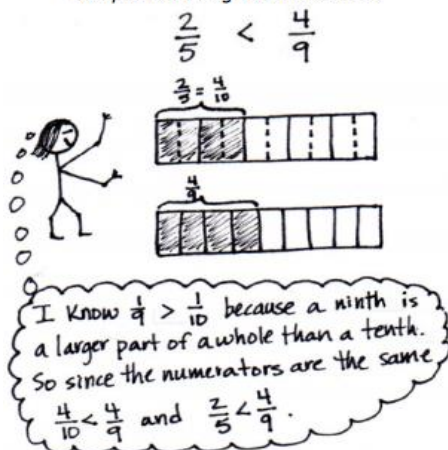 2/5 < 4/9
2/5 = 4/10
4/9
I know 1/9 > 1/10 because a ninth is
a larger part of a whole than a tenth.
So since the numerators are the same
4/10 < 4/9 and 2/5 < 4/9.